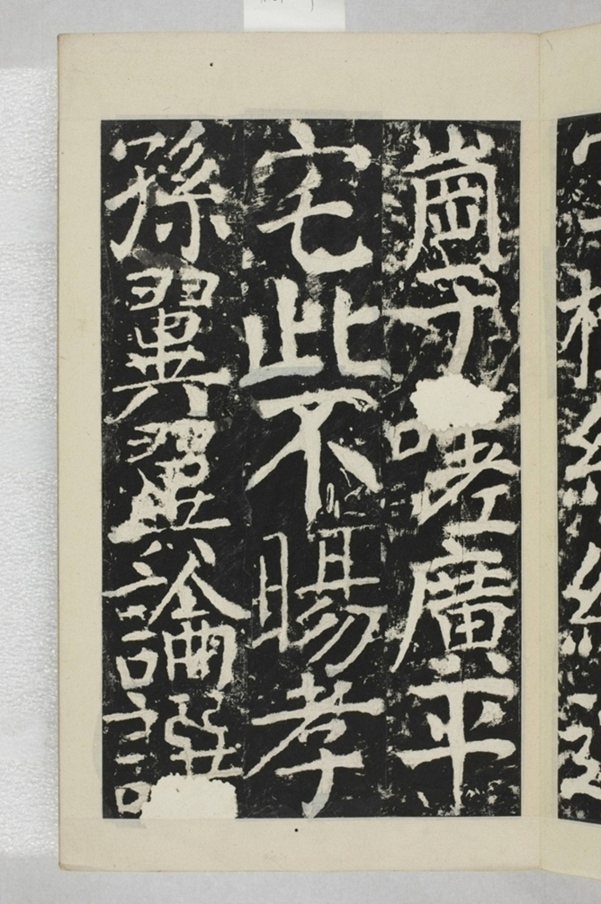 崗于嗟廣平
宅此不暘孝
孫翼翼論譔